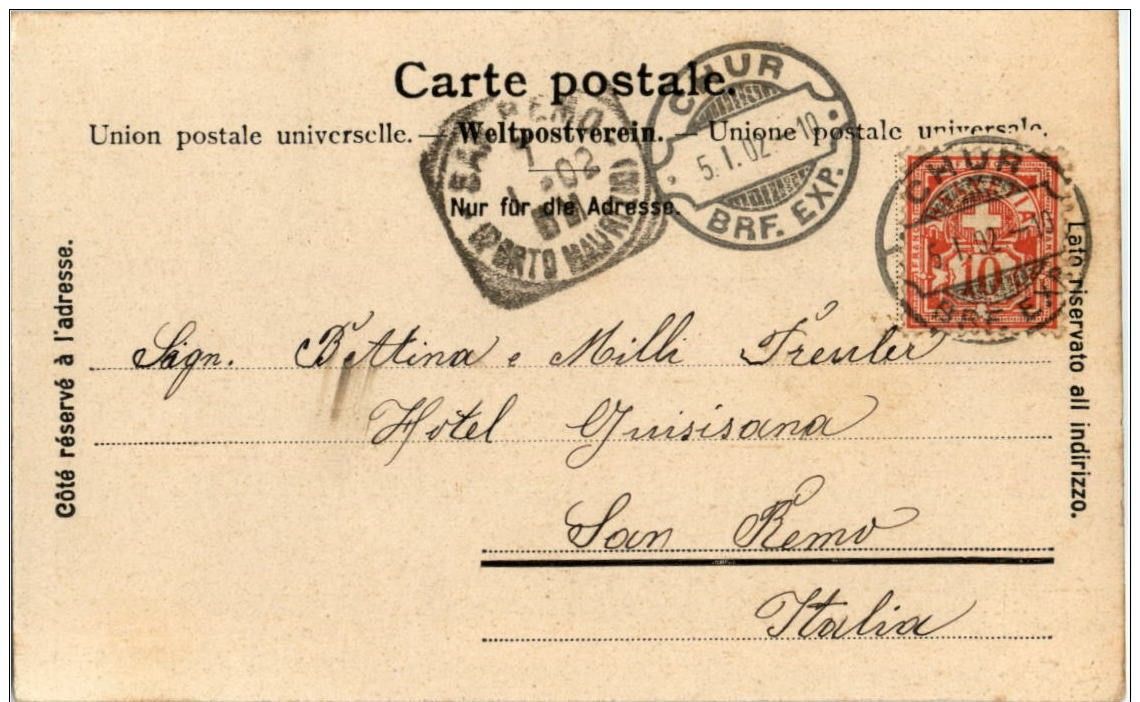 Carte postale.
Union postale universelle. — Weltpostverein. — Unione postale universale.
Nur für die Adresse.
Côté réservé à l'adresse.
Lato riservato all indirizzo.
SAN REMO
(PORTO MAURIZIO)
CHUR
5. I. 02. - 10
BRF. EXP.
CHUR
5. I. 02. - 10
BRF. EXP.
HELVETIA
10
Sign. Bettina e Milli
Hôtel
San Remo
Italia